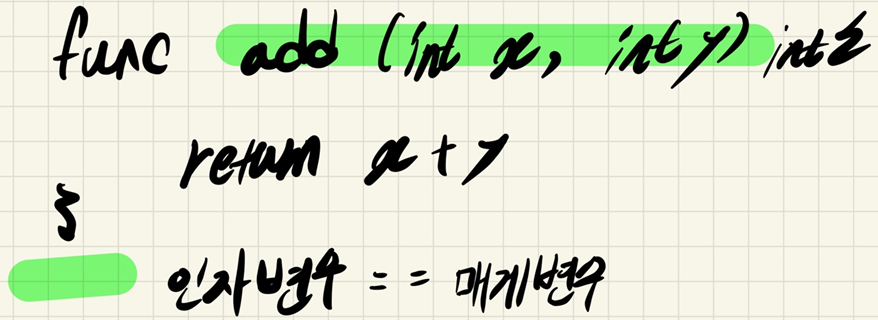 func add (int x, int y) int {
return x + y
}
인자변수 == 매개변수